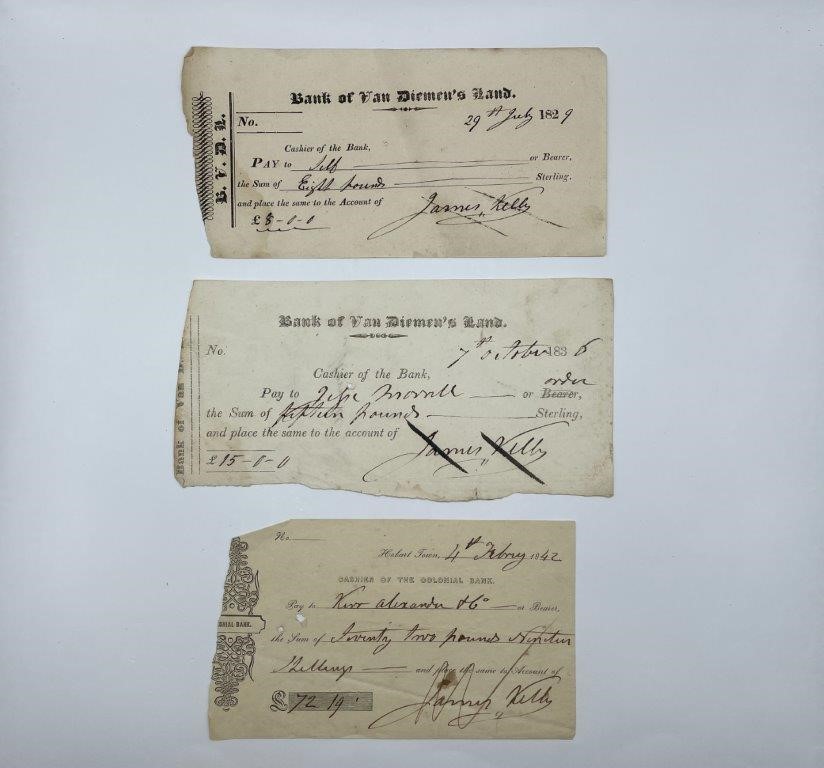 Bank of Van Diemen's Land.
B. V. D. L.
No. 29th July 1829
Cashier of the Bank,
PAY to Self or Bearer,
the Sum of Eight pounds Sterling.
and place the same to the Account of James Kelly
£ 8-0-0
Bank of Van Diemen's Land.
Bank of Van D
No. 7th October 1836
Cashier of the Bank, order
Pay to Morrill or Bearer,
the Sum of fifteen pounds Sterling,
and place the same to the account of James Kelly
£ 15-0-0
No.
Hobart Town, 4th Febry 1842
CASHIER OF THE COLONIAL BANK.
Pay to Kerr Alexander & Co or Bearer,
ONIAL BANK.
the Sum of Seventy two pounds Nineteen
Shillings and place the same to Account of
£ 72 19 James Kelly